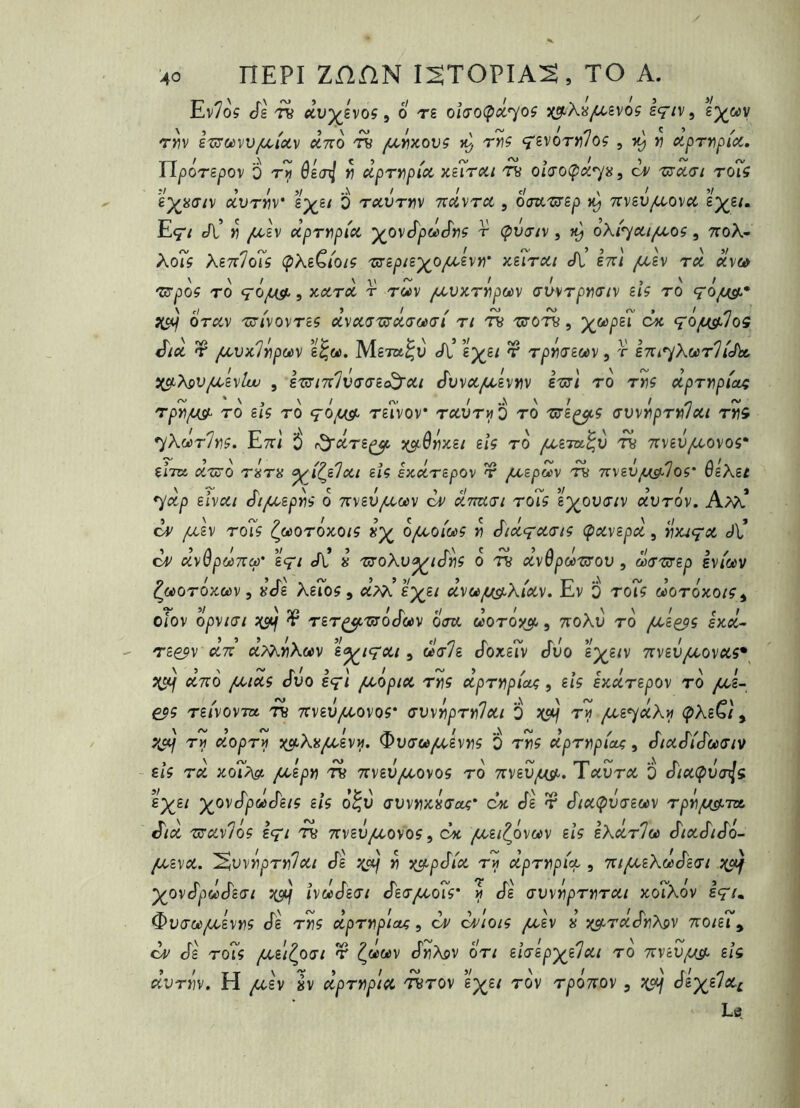 40 ΠΕΡΙ ΖΩΩΝ ΙΣΤΟΡΙΑΣ, ΤΟ Α.
Ἐντὸς δὲ τοῦ ἀυχένος, ὅ τε οἰσοφάγος καλούμενός ἐστιν, ἔχων
τὴν ἐπωνυμίαν ἀπὸ τοῦ μήκους καὶ τῆς στενότητος, καὶ ἡ ἀρτηρία.
Πρότερον δὲ τῇ θέσει ἡ ἀρτηρία κεῖται τοῦ οἰσοφάγου, ἐν πᾶσι τοῖς
ἔχουσιν ἀυτήν· ἔχει δὲ ταύτην πάντα, ὅσαπερ καὶ πνεύμονα ἔχει.
Ἔστι δ' ἡ μὲν ἀρτηρία χονδρώδης τὴν φύσιν, καὶ ὀλίγαιμος, πολ-
λοῖς λεπτοῖς φλεβίοις περιεχομένη· κεῖται δ' ἐπὶ μὲν τὰ ἄνω
πρὸς τὸ στόμα, κατὰ τὴν τῶν μυκτήρων σύντρησιν εἰς τὸ στόμα·
καὶ ὅταν πίνοντες ἀνασπάσωσί τι τοῦ ποτοῦ, χωρεῖ ἐκ στόματος
διὰ τῶν μυκτήρων ἔξω. Μεταξὺ δ' ἔχει τῶν τρήσεων, τὴν ἐπιγλωττίδα
καλουμένην, ἐπιπτύσσεσθαι δυναμένην ἐπὶ τὸ τῆς ἀρτηρίας
τρῆμα τὸ εἰς τὸ στόμα τεῖνον· ταύτῃ δὲ τὸ πέρας συνήρτηται τῆς
γλώττης. Ἐπὶ δὲ θάτερα καθήκει εἰς τὸ μεταξὺ τοῦ πνεύμονος·
εἶτα ἀπὸ τούτου σχίζεται εἰς ἑκάτερον τῶν μερῶν τοῦ πνεύματος· θέλει
γὰρ εἶναι διμερὴς ὁ πνεύμων ἐν ἅπασι τοῖς ἔχουσιν ἀυτόν. Ἀλλ'
ἐν μὲν τοῖς ζωοτόκοις οὐχ ὁμοίως ἡ διάστασις φανερά, ἥκιστα δ'
ἐν ἀνθρώπῳ· ἔστι δ' οὐ πολυσχιδὴς ὁ τοῦ ἀνθρώπου, ὥσπερ ἐνίων
ζωοτόκων, οὐδὲ λεῖος, ἀλλ' ἔχει ἀνωμαλίαν. Ἐν δὲ τοῖς ὠοτόκοις,
οἷον ὄρνισι καὶ τῶν τετραπόδων ὅσα ὠοτόκα, πολὺ τὸ μέρος ἑκά-
τερον ἀπ' ἀλλήλων ἔσχισται, ὥστε δοκεῖν δύο ἔχειν πνεύμονας·
καὶ ἀπὸ μιᾶς δύο ἐστὶ μόρια τῆς ἀρτηρίας, εἰς ἑκάτερον τὸ μέ-
ρος τείνοντα τοῦ πνεύμονος· συνήρτηται δὲ καὶ τῇ μεγάλῃ φλεβὶ,
καὶ τῇ ἀορτῇ καλουμένῃ. Φυσωμένης δὲ τῆς ἀρτηρίας, διαδίδωσιν
εἰς τὰ κοῖλα μέρη τοῦ πνεύμονος τὸ πνεῦμα. Ταῦτα δὲ διαφύσεις
ἔχει χονδρώδεις εἰς ὀξὺ συνηκούσας· ἐκ δὲ τῶν διαφύσεων τρήματα
διὰ παντός ἐστι τοῦ πνεύμονος, ἐκ μειζόνων εἰς ἐλάττω διαδιδό-
μενα. Συνήρτηται δὲ καὶ ἡ καρδία τῇ ἀρτηρίᾳ, πιμελώδεσι καὶ
χονδρώδεσι καὶ ἰνώδεσι δεσμοῖς· ᾗ δὲ συνήρτηται κοῖλόν ἐστι.
Φυσωμένης δὲ τῆς ἀρτηρίας, ἐν ἐνίοις μὲν οὐ κατάδηλον ποιεῖ,
ἐν δὲ τοῖς μείζοσι τῶν ζώων δῆλον ὅτι εἰσέρχεται τὸ πνεῦμα εἰς
ἀυτήν. Ἡ μὲν οὖν ἀρτηρία τοῦτον ἔχει τὸν τρόπον, καὶ δέχεται